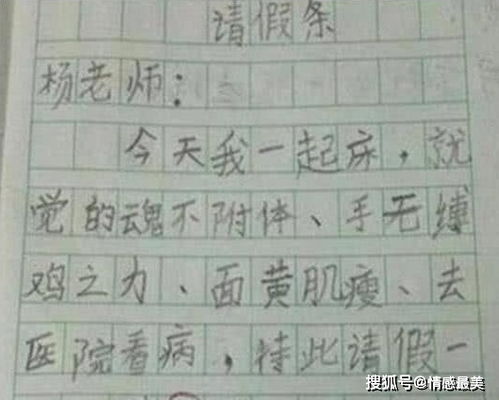 请假条
杨老师：
今天我一起床，就
觉的魂不附体、手无缚
鸡之力、面黄肌瘦、去
医院看病，特此请假一
搜狐号@情感最美